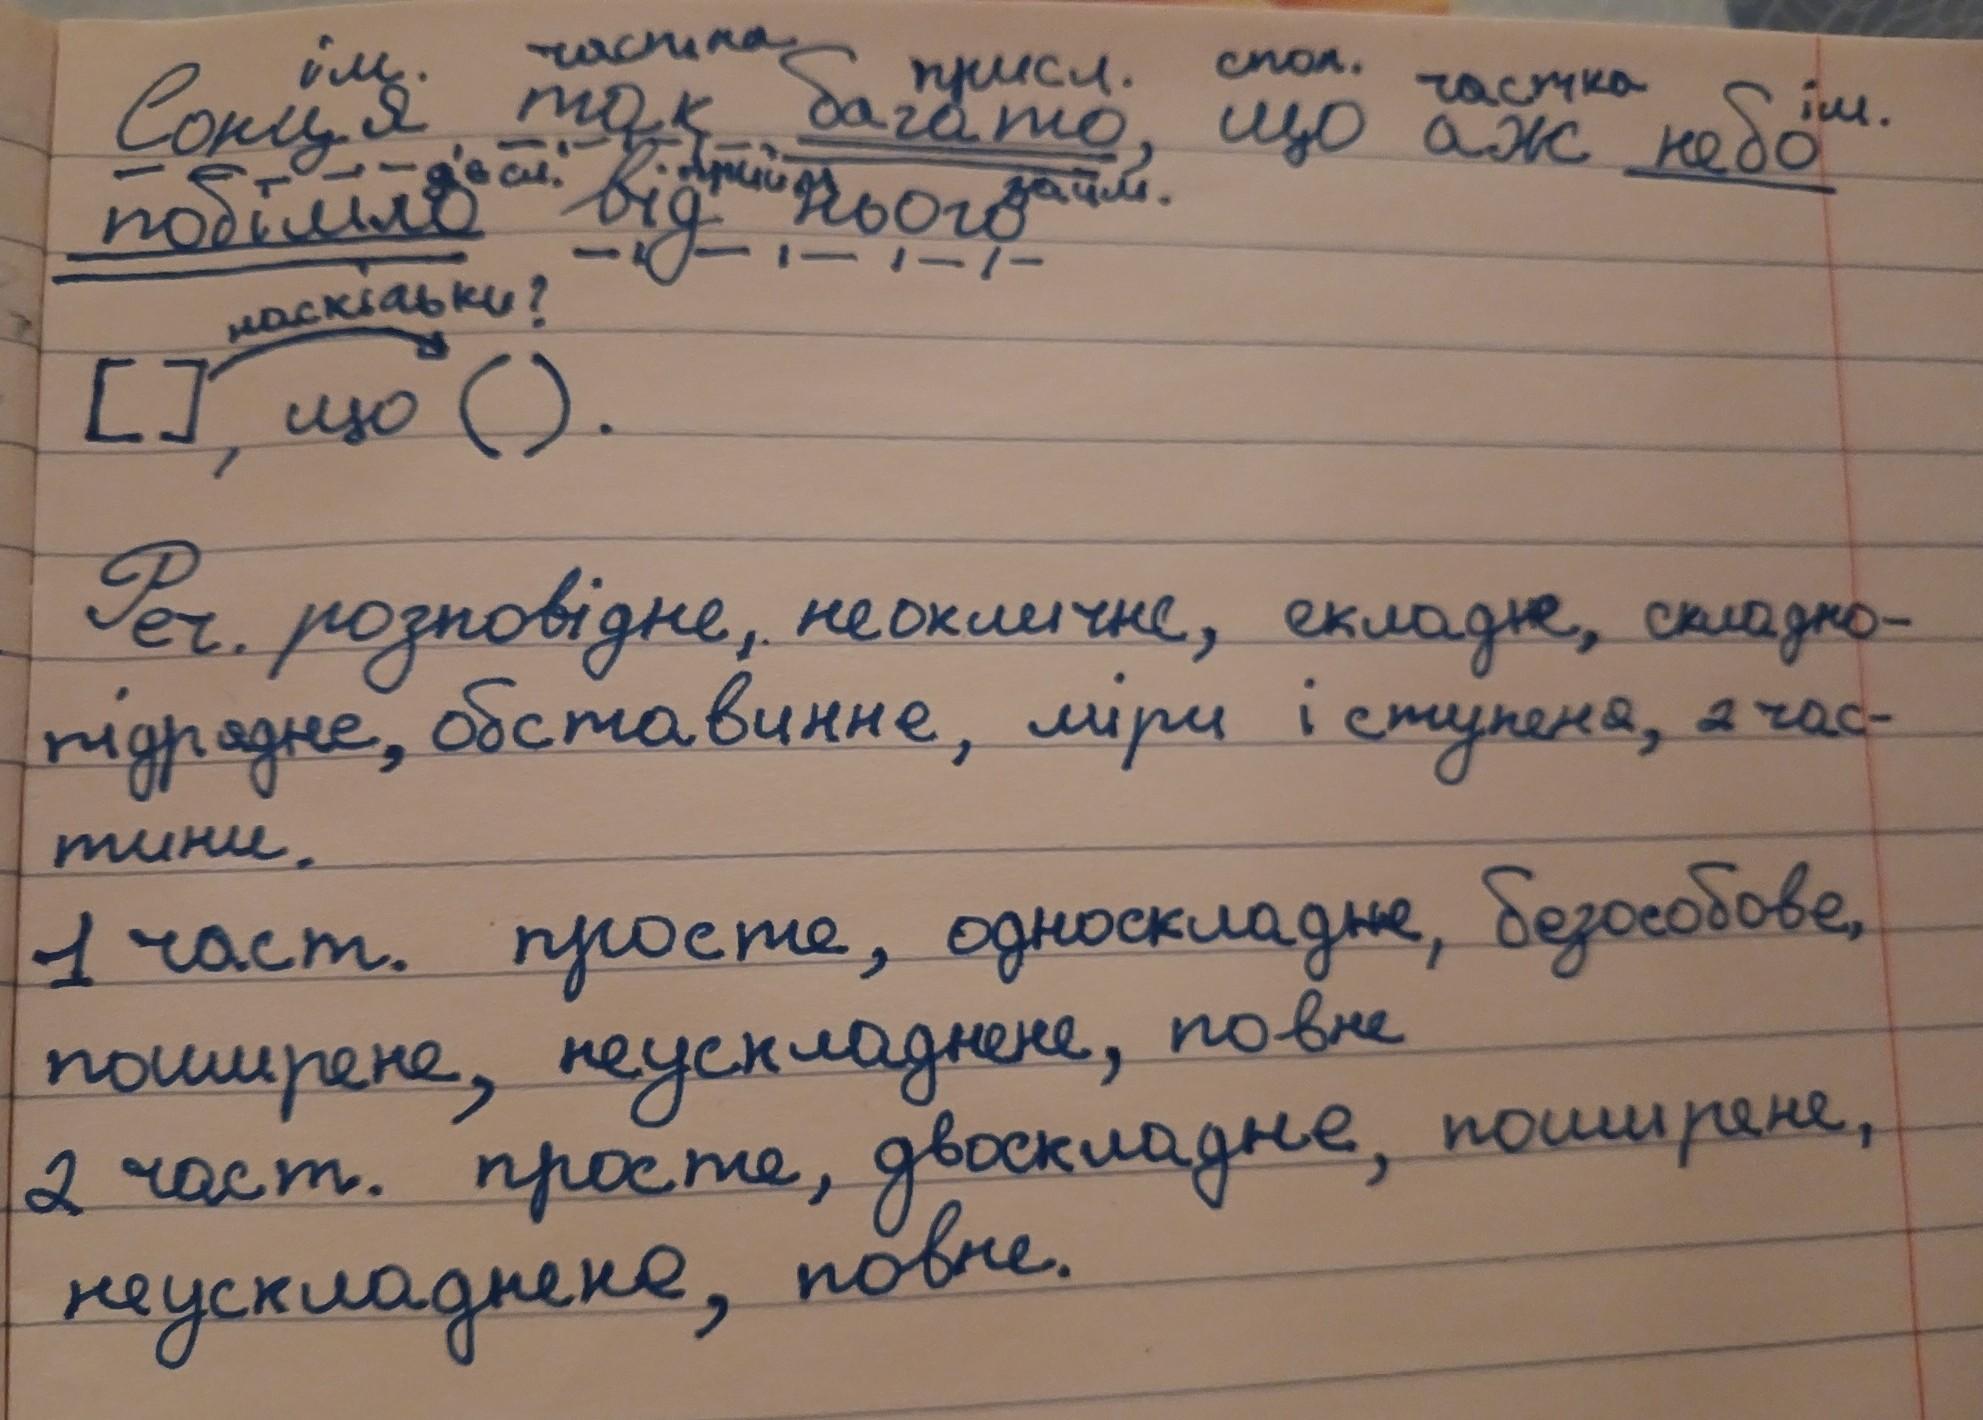 ім. частка присл. спол. частка ім.
Сонця так багато, що аж небо
дієсл. прийм. займ.
побілило від нього
наскільки?
[ ], що ( ).
Реч. розповідне, неокличне, складне, складно-
підрядне, обставинне, міри і ступеня, 2 час-
тини.
1 част. просте, односкладне, безособове,
поширене, неускладнене, повне
2 част. просте, двоскладне, поширене,
неускладнене, повне.